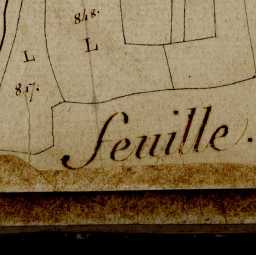 848.
L
L
817.
feuille.